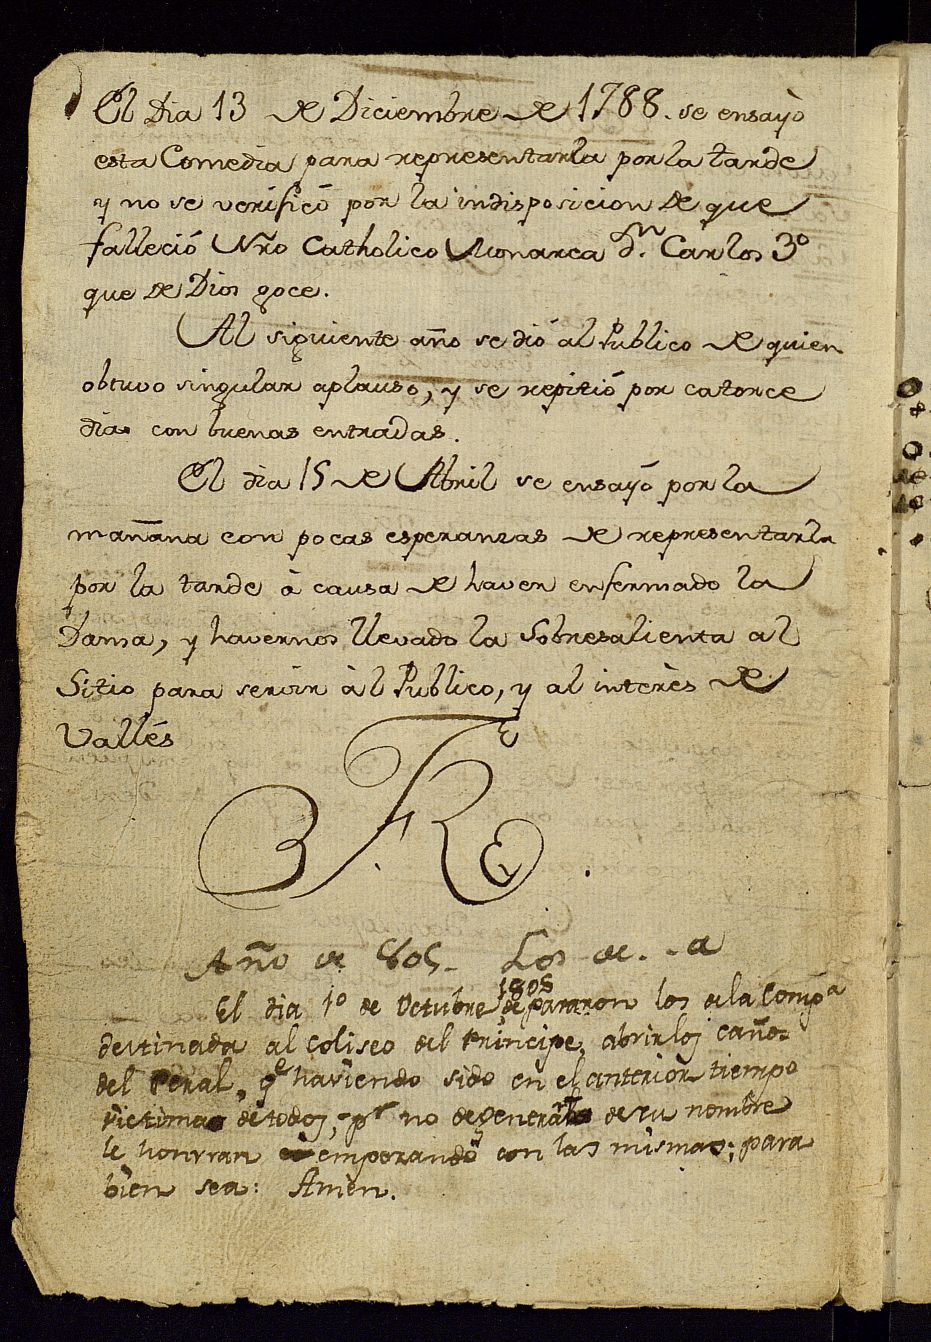 El Dia 13 de Diciembre de 1788. se ensayò
esta Comedia para representarla por la tarde
y no se verificó por la indisposicion de que
falleció Nr̃o Catholico Monarca dn. Carlos 3º
que de Dios goce.
Al siguiente año se dió al Publico de quien
obtuvo singular aplauso, y se repitió por catorce
dias con buenas entradas.
El dia 15 de Abril se ensayó por la
mañana con pocas esperanzas de representarla
por la tarde à causa de haver enfermado la
Dama, y havernos llevado la Sobresalienta al
Sitio para servir àl Publico, y al interès de
Vallés
Año de 805- Los de
1805
El dia 1º de Octubre separaron los de la Compa
destinada al Coliseo del Principe, abrir los caños
del Peral, qe haviendo sido en el anterior tiempo
victimas de todos, pr no degenerar de su nombre
le honrran emperando con las mismas; para
bien sea: Amen.